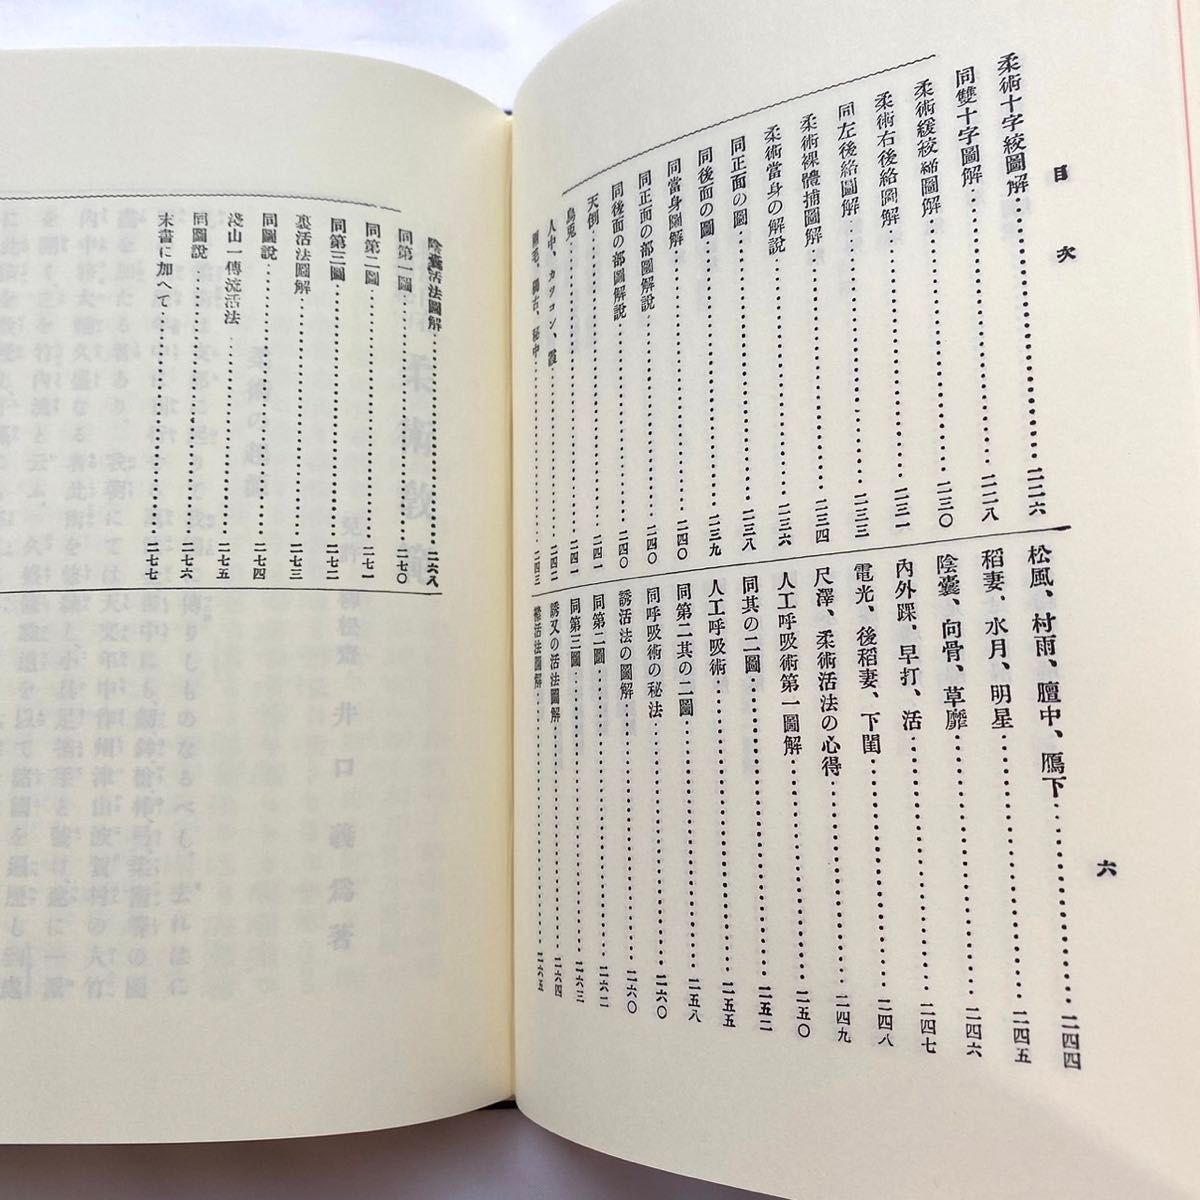 目次
六
柔術十字絞圖解 二二六
同雙十字圖解 二二八
柔術緩絞 圖解 二三〇
柔術右後絡圖解 二三一
同左後絡圖解 二三三
柔術裸體捕圖解 二三四
柔術當身の解說 二三六
同正面の圖 二三八
同後面の圖 二三九
同當身圖解 二四〇
同正面の部圖解說 二四〇
同後面の部圖解說 二四〇
天倒 二四一
烏兎 二四一
人中、カツコン、霞 二四二
獨古、秘中 二四三
松風、村雨、膻中、鴈下 二四四
稻妻、水月、明星 二四五
陰囊、向骨、草靡 二四六
內外踝、早打、活 二四七
電光、後稻妻、下閨 二四八
尺澤、柔術活法の心得 二四九
人工呼吸術第一圖解 二五〇
同其の二圖 二五二
人工呼吸術 二五五
同第二其の二圖 二五八
同呼吸術の秘法 二六〇
誘活法の圖解 二六〇
同第二圖 二六二
同第三圖 二六三
誘又の活法圖解 二六四
活法圖解 二六五
陰囊活法圖解 二六八
同第一圖 二七〇
同第二圖 二七一
同第三圖 二七二
裏活法圖解 二七三
同圖說 二七四
淺山一傳流活法 二七五
同圖說 二七六
末書に加へて 二七七